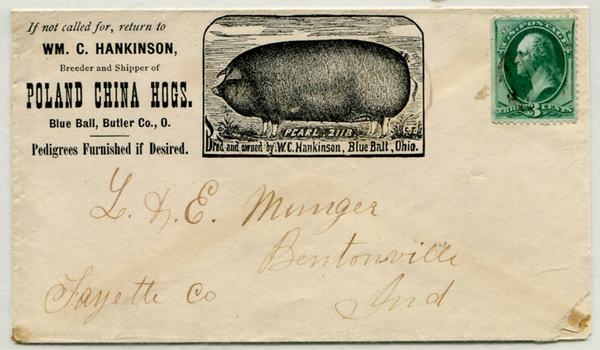 If not called for, return to
WM. C. HANKINSON,
Breeder and Shipper of
POLAND CHINA HOGS.
Blue Ball, Butler Co., O.
Pedigrees Furnished if Desired.
PEARL, 2118
Bred and owned by W.C. Hankinson, Blue Ball, Ohio.
U.S. POSTAGE
THREE 3 CENTS
L. & E. Munger
Bentonville
Fayette Co
Ind